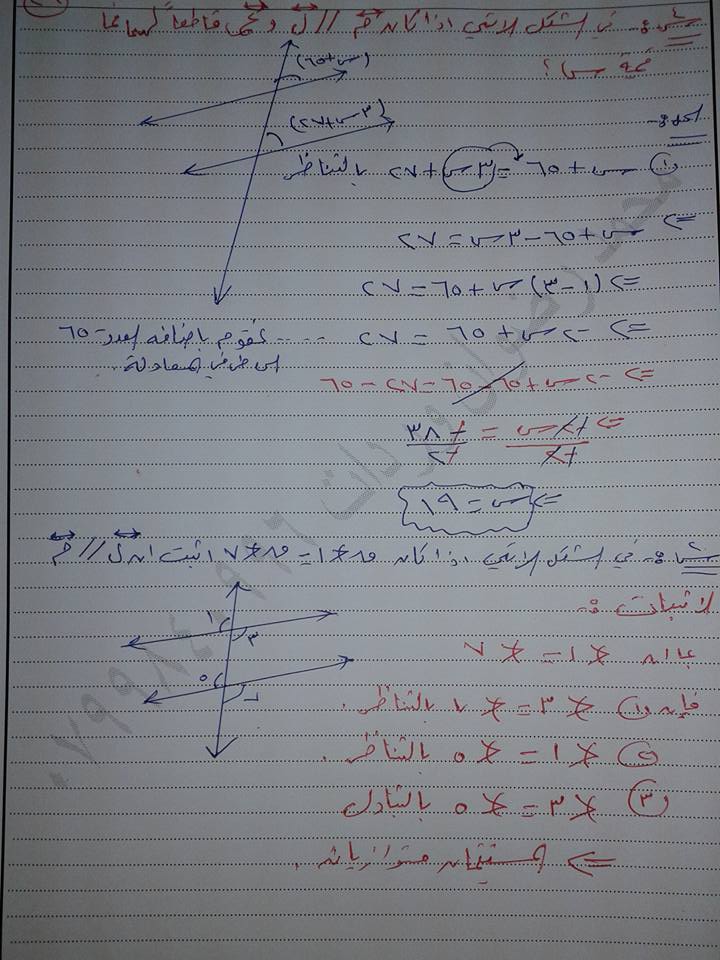 س٤:- في الشكل الاتي اذا كان م // ل و قاطعاً لهما فما
قيمة س؟
(س+٦٥)
(٣س+٢٧)
الحل:-
① س + ٦٥ = ٣س + ٢٧ بالتناظر
⇐ س + ٦٥ - ٣س = ٢٧
⇐ (١-٣)س + ٦٥ = ٢٧
⇐ -٢س + ٦٥ = ٢٧ .... نقوم باضافه العدد - ٦٥
الى طرفي المعادلة.
⇐ -٢س + ٦٥ - ٦٥ = ٢٧ - ٦٥
⇐ -٢س / -٢ = -٣٨ / -٢
⇐ س = ١٩
في الشكل الاتي اذا كان ∢ ١ = ∢ ٧ اثبت ان ل // م
١
٣
٥
٧
لاثبات :-
بما ان ∢ ١ = ∢ ٧
فإن ① ∢ ٣ = ∢ ٧ بالتناظر.
② ∢ ١ = ∢ ٥ بالتناظر.
③ ∢ ٣ = ∢ ٥ بالتبادل
⇐ المستقيمان متوازيان.
محمد رضوان وردات